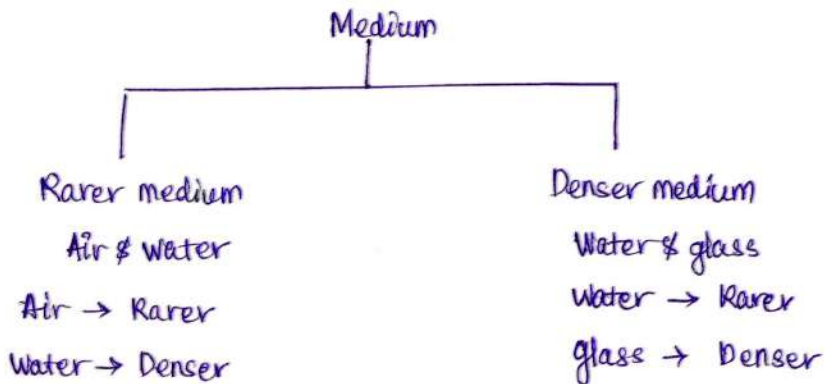 Medium
Rarer medium
Air & water
Air → Rarer
Water → Denser
Denser medium
Water & glass
Water → Rarer
glass → Denser